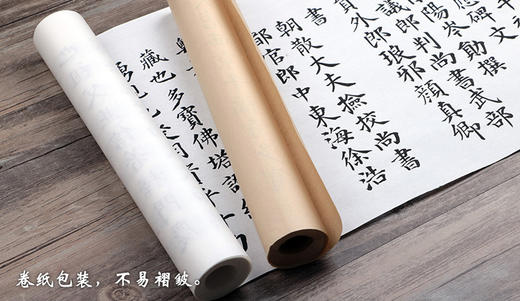 應碑文
陽岑勛撰
議郎判尚書武部
員外郎琅邪顏真卿
書
朝散大夫撿挍尚書
都官郎中東海徐浩
藏也多寶佛塔證
卷纸包装，不易褶皱。